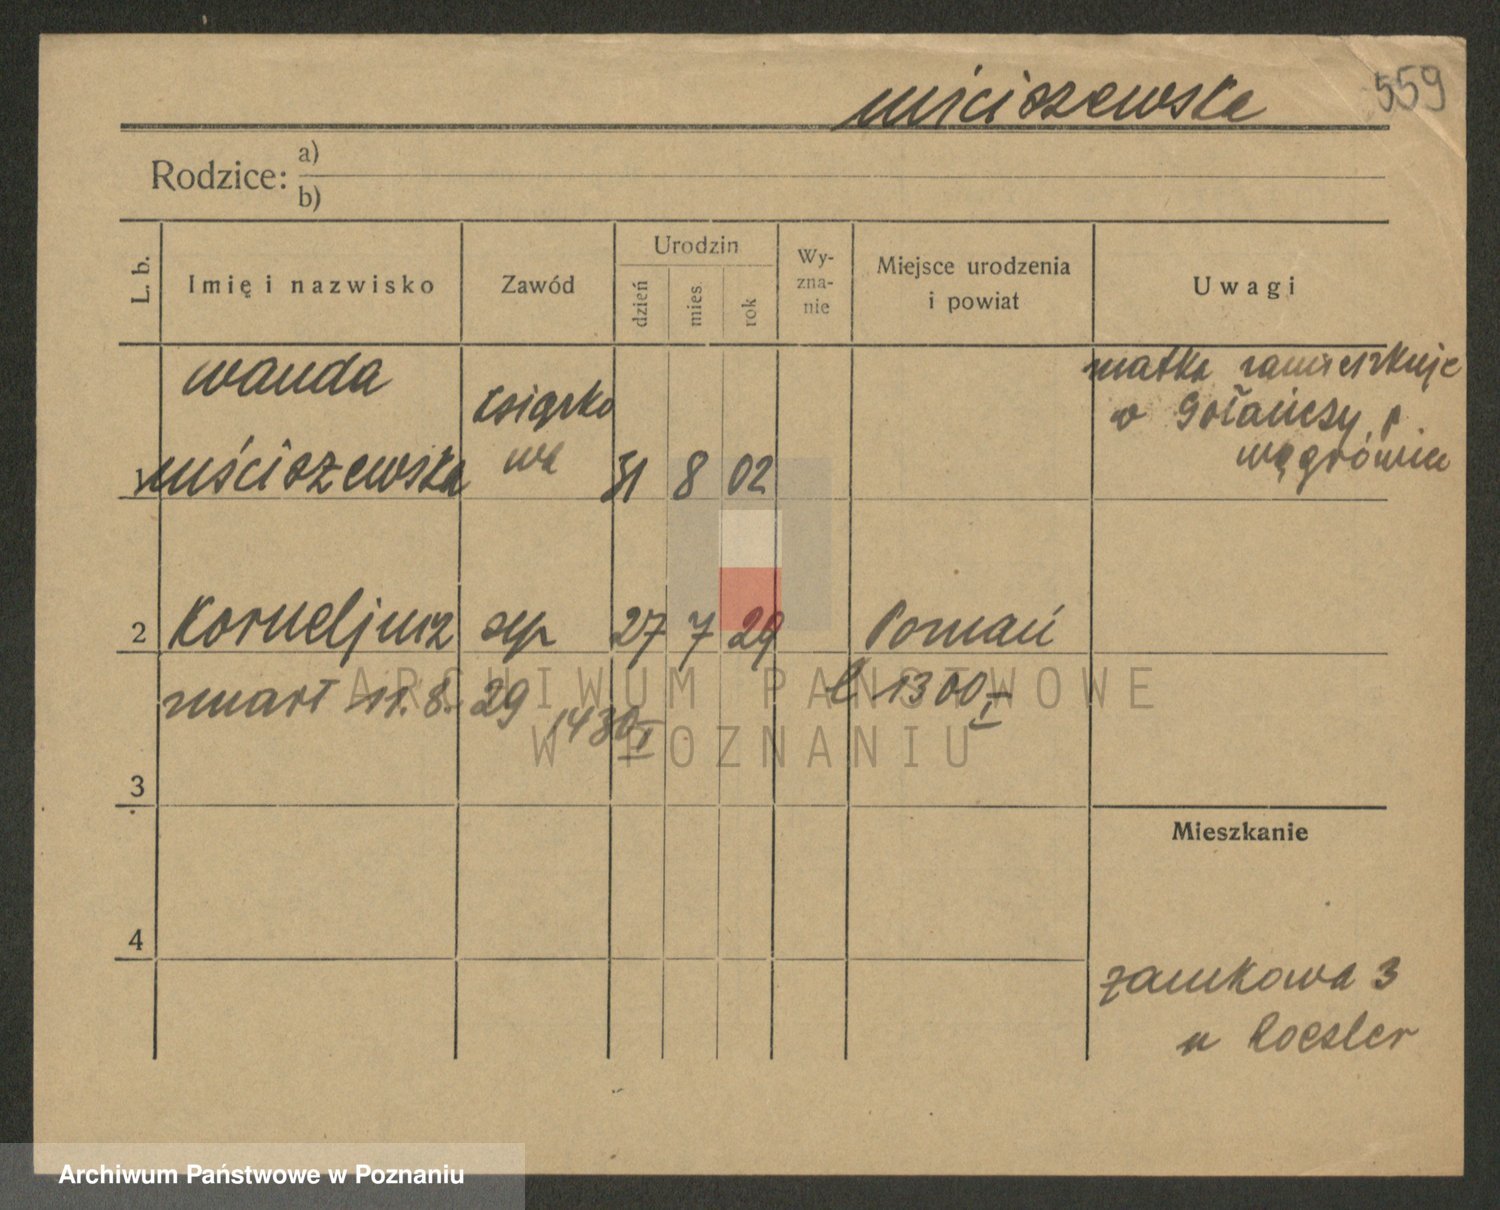 559
Miciszewska
Rodzice: a)
b)
L. b.
Imię i nazwisko
Zawód
Urodzin
dzień
mies.
rok
Wy-
zna-
nie
Miejsce urodzenia
i powiat
Uwagi
Wanda
Książko
wa
matka zamieszkuje
w Gołańczy, p
Wągrówiec
1 Miściszewska
31 8 02
2 Korneljusz syn 27 7 29 Poznań
zmarł 11.8. 29 1430/I
l 1300/I
3
Mieszkanie
4
Zamkowa 3
u Roesler
ARCHIWUM PAŃSTWOWE
W POZNANIU
Archiwum Państwowe w Poznaniu